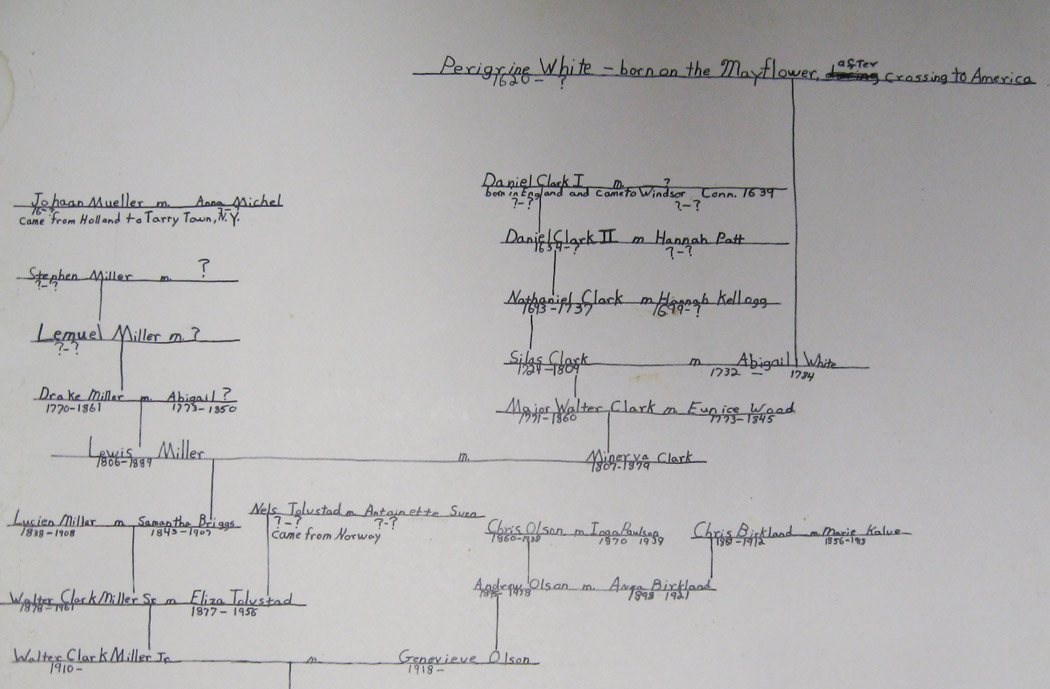 Perigrine White - born on the Mayflower, after crossing to America
1620- ?
Daniel Clark I m. ?
born in England and came to Windsor Conn. 1639
?-? ?-?
Johaan Mueller m. Anna Michel
?-?
Came from Holland to Tarry Town, N.Y.
Daniel Clark II m Hannah Patt
1654-? ?-?
Stephen Miller m. ?
?-?
Nathaniel Clark m Hannah Kellogg
1693-1737 1699-?
Lemuel Miller m. ?
?-?
Silas Clark m Abigail White
1724-1809 1732 - 1784
Drake Miller m. Abigail ?
1770-1861 1773-1850
Major Walter Clark m. Eunice Wood
1771-1860 1773-1845
Lewis Miller m. Minerva Clark
1806-1889 1807-1879
Nels Tolvstad m Antoinette Sven
?-? ?-?
Came from Norway
Lucien Miller m Samantha Briggs
1838-1908 1843-1907
Chris Olson m Inga Paulson
1870 1939
Chris Birkland m Marie Kalve
Andrew Olson m. Anna Birkland
1898 1921
Walter Clark Miller Sr m Eliza Tolvstad
1878-1961 1877-1956
Walter Clark Miller Jr m. Genevieve Olson
1910- 1918-